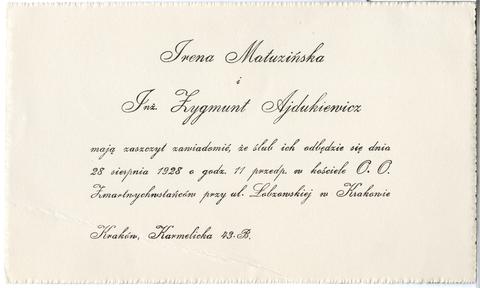 Irena Matuzińska
i
Inż. Zygmunt Ajdukiewicz
mają zaszczyt zawiadomić, że ślub ich odbędzie się dnia
28 sierpnia 1928 o godz. 11 przedp. w kościele O. O.
Zmartwychwstańców przy ul. Łobzowskiej w Krakowie
Kraków, Karmelicka 43-B.